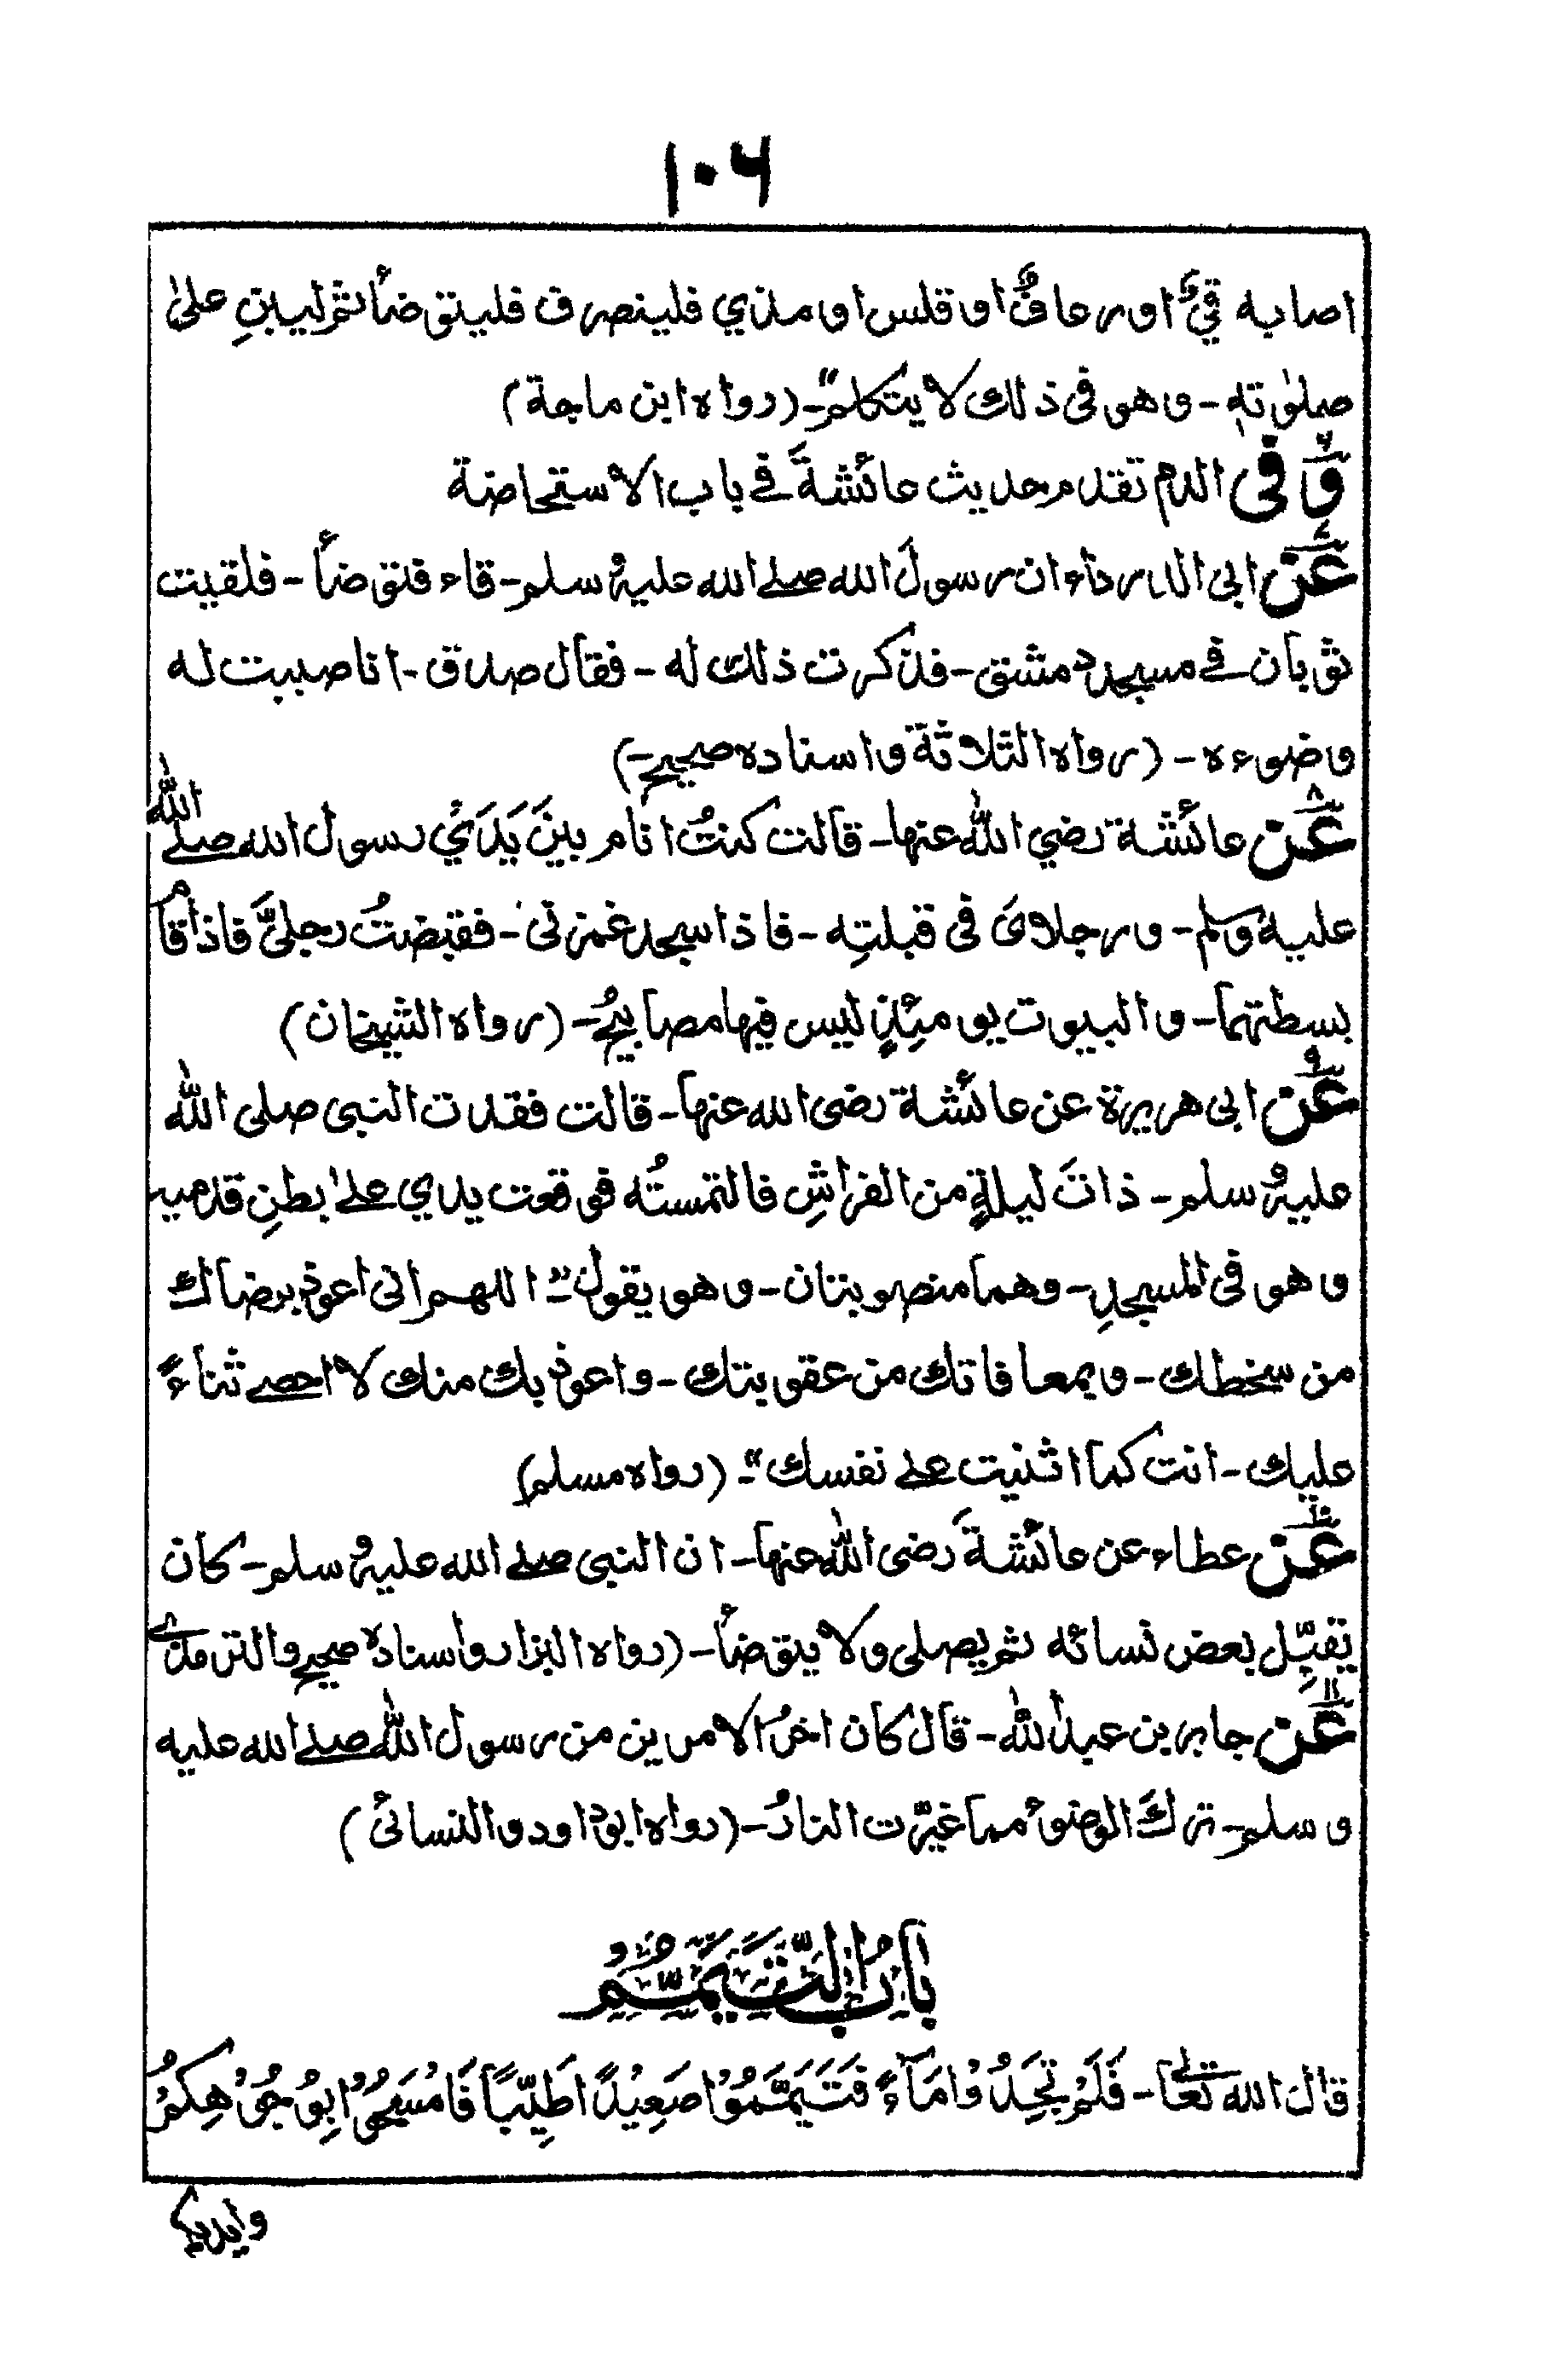 ١٠٦
اصابه قيءٌ او رعافٌ او قلس او مذي فلينصرف فليتوضأ ثم ليبنِ علىٰ
صلوٰتهٖ - وهو فى ذلك لا يتكلم"- (رواه ابن ماجة)
٦ وَفى الدم تقدم حديث عائشةَ فے باب الاستحاضة
٧ عَن ابى الدرداء ان رسولَ الله صلے الله عليه وسلم - قاء فتوضأ - فلقيت
ثوبان فے مسجد دمشق - فذكرت ذلك له - فقال صدق - انا صببت له
وضوءه - (رواه الثلاثة واسناده صحيح -)
٨ عَن عائشة رضي اللهُ عنها - قالت كنتُ انام بينَ يَدَيْ رسول الله صلے الله
عليه وسلم - ورجلاىَ فى قبلتِه - فاذا سجد غمزنى - فقبضتُ رجلىَّ فاذا قام
بسطتهما - والبيوت يومئِذٍ ليس فيها مصابيحُ - (رواه الشيخان)
٩ عَن ابى هريرة عن عائشة رضى الله عنها - قالت فقدت النبى صلى الله
عليه وسلم - ذاتَ ليلةٍ من الفراشِ فالتمستُه فوقعت يدي علےٰ بطنِ قدميه
وهو فى المسجدِ - وهما منصوبتان - وهو يقول "اللهم انى اعوذ برضاك
من سخطك - وبمعافاتك من عقوبتك - واعوذ بك منك لا احصے ثناءً
عليك - انت كما اثنيت علے نفسك"- (رواه مسلم)
١٠ عَن عطاء عن عائشةَ رضى الله عنها - ان النبى صلے الله عليه وسلم - كان
يقبِّل بعض نسائه ثم يصلى ولا يتوضأ - (رواه البزار واسناده صحيح والترمذى)
١١ عَن جابر بن عبد الله - قال كان اخرُ الامرين من رسول الله صلے الله عليه
وسلم - تركَ الوضوءِ مما غيّرت النارُ - (رواه ابو داود والنسائى)
بَابُ التَّيَمُّمِ
قال الله تعالىٰ - فَلَمْ تَجِدُوْا مَآءً فَتَيَمَّمُوْا صَعِيْدًا طَيِّبًا فَامْسَحُوْا بِوُجُوْهِكُمْ
وايديكم